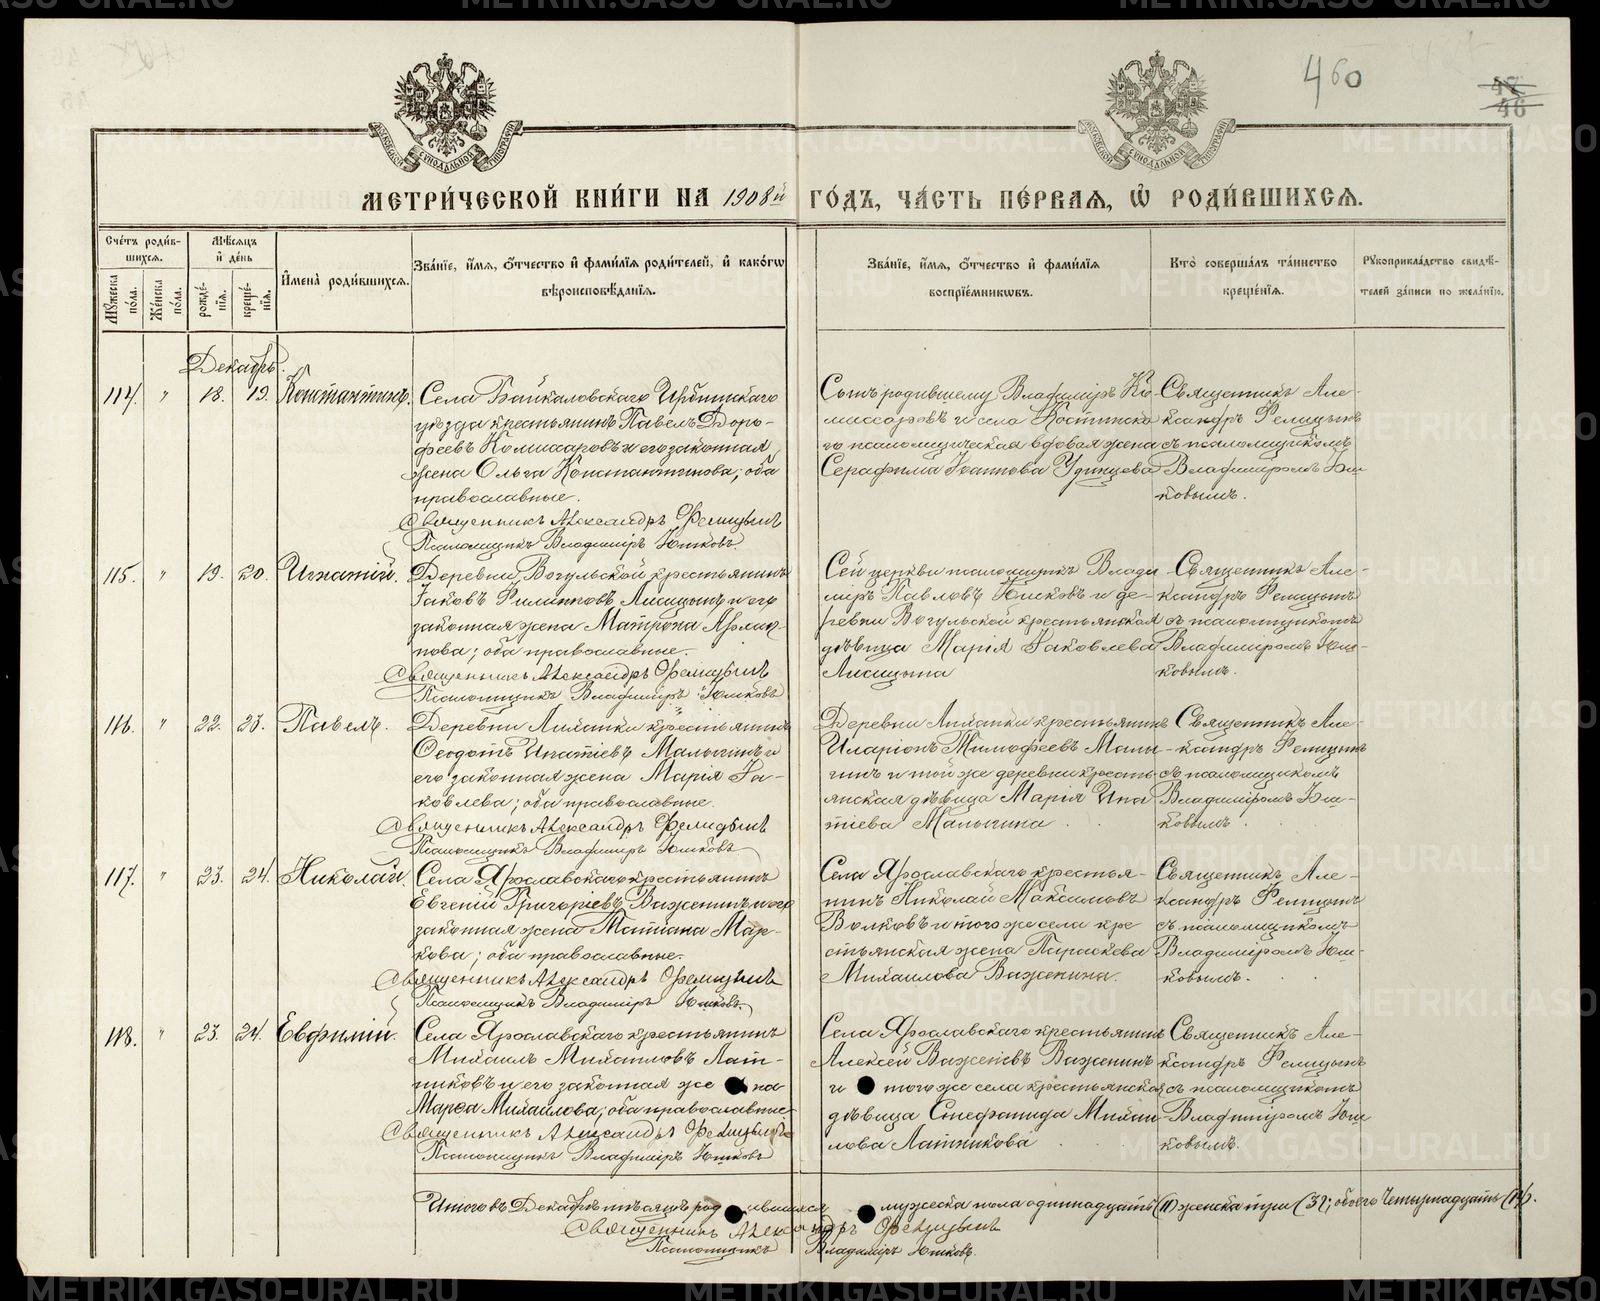 460
47
46
МЕТРИ́ЧЕСКОЙ КНИ́ГИ НА 1908й ГО́ДЪ, ЧА́СТЬ ПЕ́РВАЯ, Ѿ РОДИ́ВШИХСЯ.
Сче́тъ роди́вшихся.
Мꙋ́жеска по́ла.
Же́нска по́ла.
Мѣ́сяцъ и҆ де́нь
рожде́нїя.
креще́нїя.
И҆мена̀ роди́вшихся.
Зва́нїе, и҆́мя, ѻ҆́тчество и҆ фами́лїя роди́телей, и҆ како́гѡ
вѣроисповѣ́данїя.
Зва́нїе, и҆́мя, ѻ҆́тчество и҆ фами́лїя
воспрїе́мникѡвъ.
Кто̀ соверша́лъ та́инство
креще́нїя.
Рꙋкоприкла́дство свидѣ́-
телей за́писи по жела́нїю.
Декабрь.
114. " 18. 19. Константинъ.
Села Байкаловскаго Ирбитскаго
уѣзда крестьянинъ Павелъ Доро-
феевъ Комиссаровъ и его законная
жена Ольга Константинова; оба
православные.
Священникъ Александръ Фелицынъ
Псаломщикъ Владиміръ Юшковъ.
Владиміръ Ко-
миссаровъ и села Костинска-
го псаломщическая вдовая жена
Серафима Іоаннова Удинцева
Священникъ Але-
ксандръ Фелицынъ
съ псаломщикомъ
Владиміромъ Юш-
ковымъ.
115. " 19. 20. Игнатій.
Деревни Вогульской крестьянинъ
Іаковъ Филипповъ Лисицынъ и его
законная жена Матрона
оба православные.
Священникъ Александръ Фелицынъ
Псаломщикъ Владиміръ Юшковъ
Сей церкви псаломщикъ Влади-
міръ Павловъ Юшковъ и де-
ревни Вогульской крестьянская
дѣвица Марія Іаковлева
Лисицына
Священникъ Але-
ксандръ Фелицынъ
съ псаломщикомъ
Владиміромъ Юш-
ковымъ.
116. " 22. 23. Павелъ.
Деревни Лихатки крестьянинъ
Ѳеодотъ Ипатіевъ Малыгинъ и
его законная жена Марія Іа-
ковлева; оба православные.
Священникъ Александръ Фелицынъ
Псаломщикъ Владиміръ Юшковъ
Деревни Лихатки крестьянинъ
Иларіонъ Тимофеевъ Малы-
гинъ и той же деревни кресть-
янская дѣвица Марія Ипа-
тіева Малыгина.
Священникъ Але-
ксандръ Фелицынъ
съ псаломщикомъ
Владиміромъ Юш-
ковымъ.
117. " 23. 24. Николай.
Села Ярославскаго крестьянинъ
Евгеній Григоріевъ Важенинъ и его
законная жена Татіана Мар-
кова; оба православные.
Священникъ Александръ Фелицынъ
Псаломщикъ Владиміръ Юшковъ.
Села Ярославскаго крестья-
нинъ Николай Максимовъ
Волковъ и того же села кре-
стьянская жена Параскева
Михаилова Важенина.
Священникъ Але-
ксандръ Фелицынъ
съ псаломщикомъ
Владиміромъ Юш-
ковымъ.
118. " 23. 24. Евфимій.
Села Ярославскаго крестьянинъ
Михаилъ Михаиловъ Латни-
ковъ и его законная жена
Марѳа Михаилова; оба православные
Священникъ Александръ Фелицынъ
Псаломщикъ Владиміръ Юшковъ
Села Ярославскаго крестьянинъ
Алексей Важенинъ
и того же села крестьянская
дѣвица Стефанида Михаи-
лова Латникова
Священникъ Але-
ксандръ Фелицынъ
съ псаломщикомъ
Владиміромъ Юш-
ковымъ.
Итого въ Декабрѣ мѣсяцѣ родившихся мужеска пола одиннадцать (11) женска три (3), обоего четырнадцать (14).
Священникъ Александръ Фелицынъ
Псаломщикъ Владиміръ Юшковъ.
METRIKI.GASO-URAL.RU